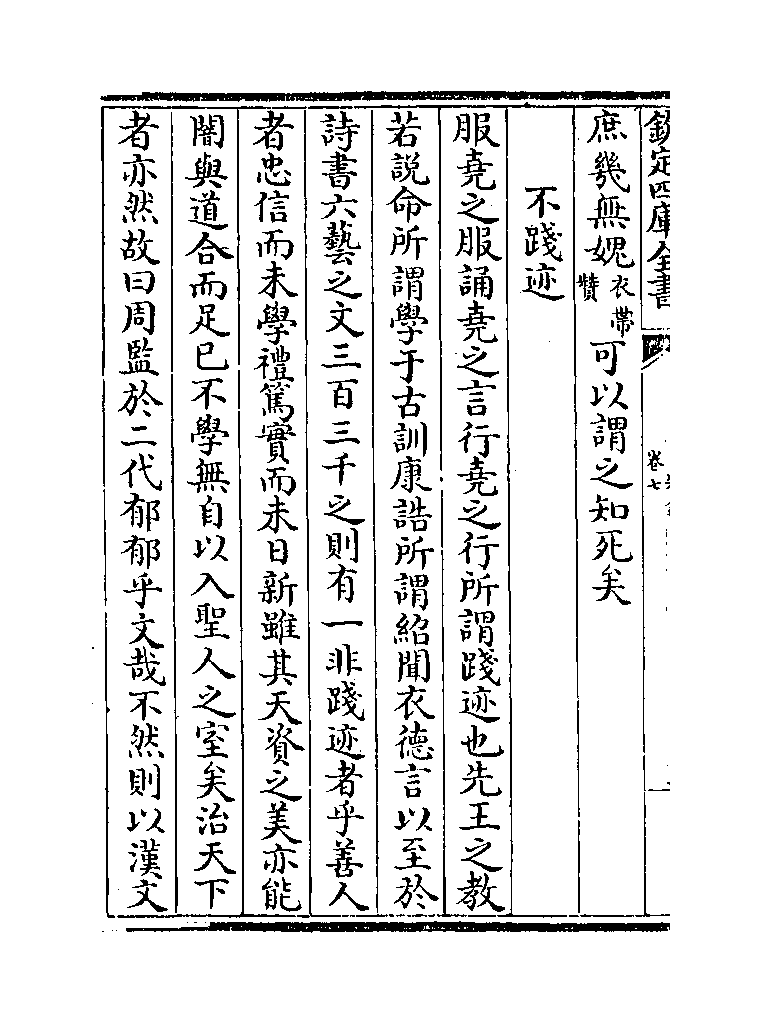 欽定四庫全書
卷七
庶幾無媿衣帶贊可以謂之知死矣
不踐迹
服堯之服誦堯之言行堯之行所謂踐迹也先王之教
若說命所謂學于古訓康誥所謂紹聞衣德言以至於
詩書六藝之文三百三千之則有一非踐迹者乎善人
者忠信而未學禮篤實而未日新雖其天資之美亦能
闇與道合而足已不學無自以入聖人之室矣治天下
者亦然故曰周監於二代郁郁乎文哉不然則以漢文